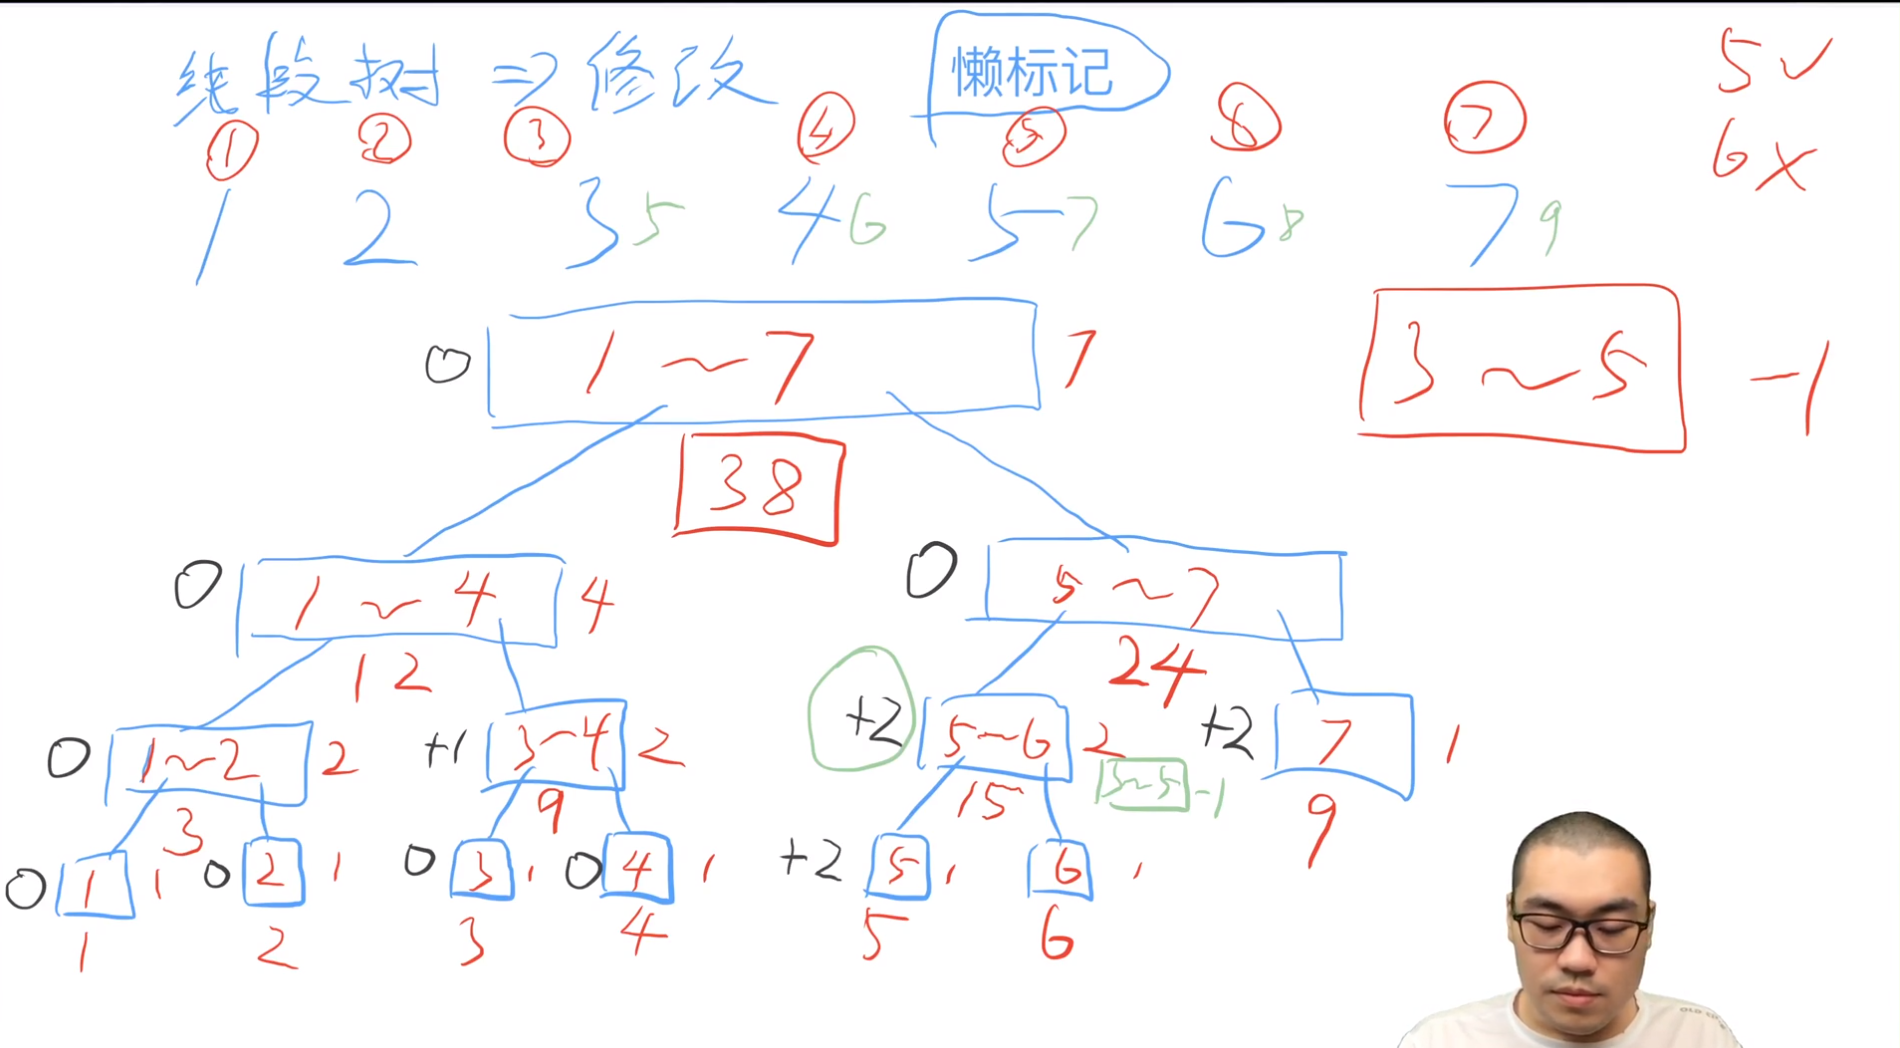 线段树 => 修改 懒标记 5✓
① ② ③ ④ ⑤ ⑥ ⑦ 6×
1 2 3 5 4 6 5 7 6 8 7 9
0 1~7 7 3~5 -1
38
0 1~4 4 0 5~7
12 24
0 1~2 2 +1 3~4 2 +2 5~6 2 +2 7 1
3~5 -1
3 9 15 9
0 1 1 0 2 1 0 3 1 0 4 1 +2 5 1 6 1
1 2 3 4 5 6